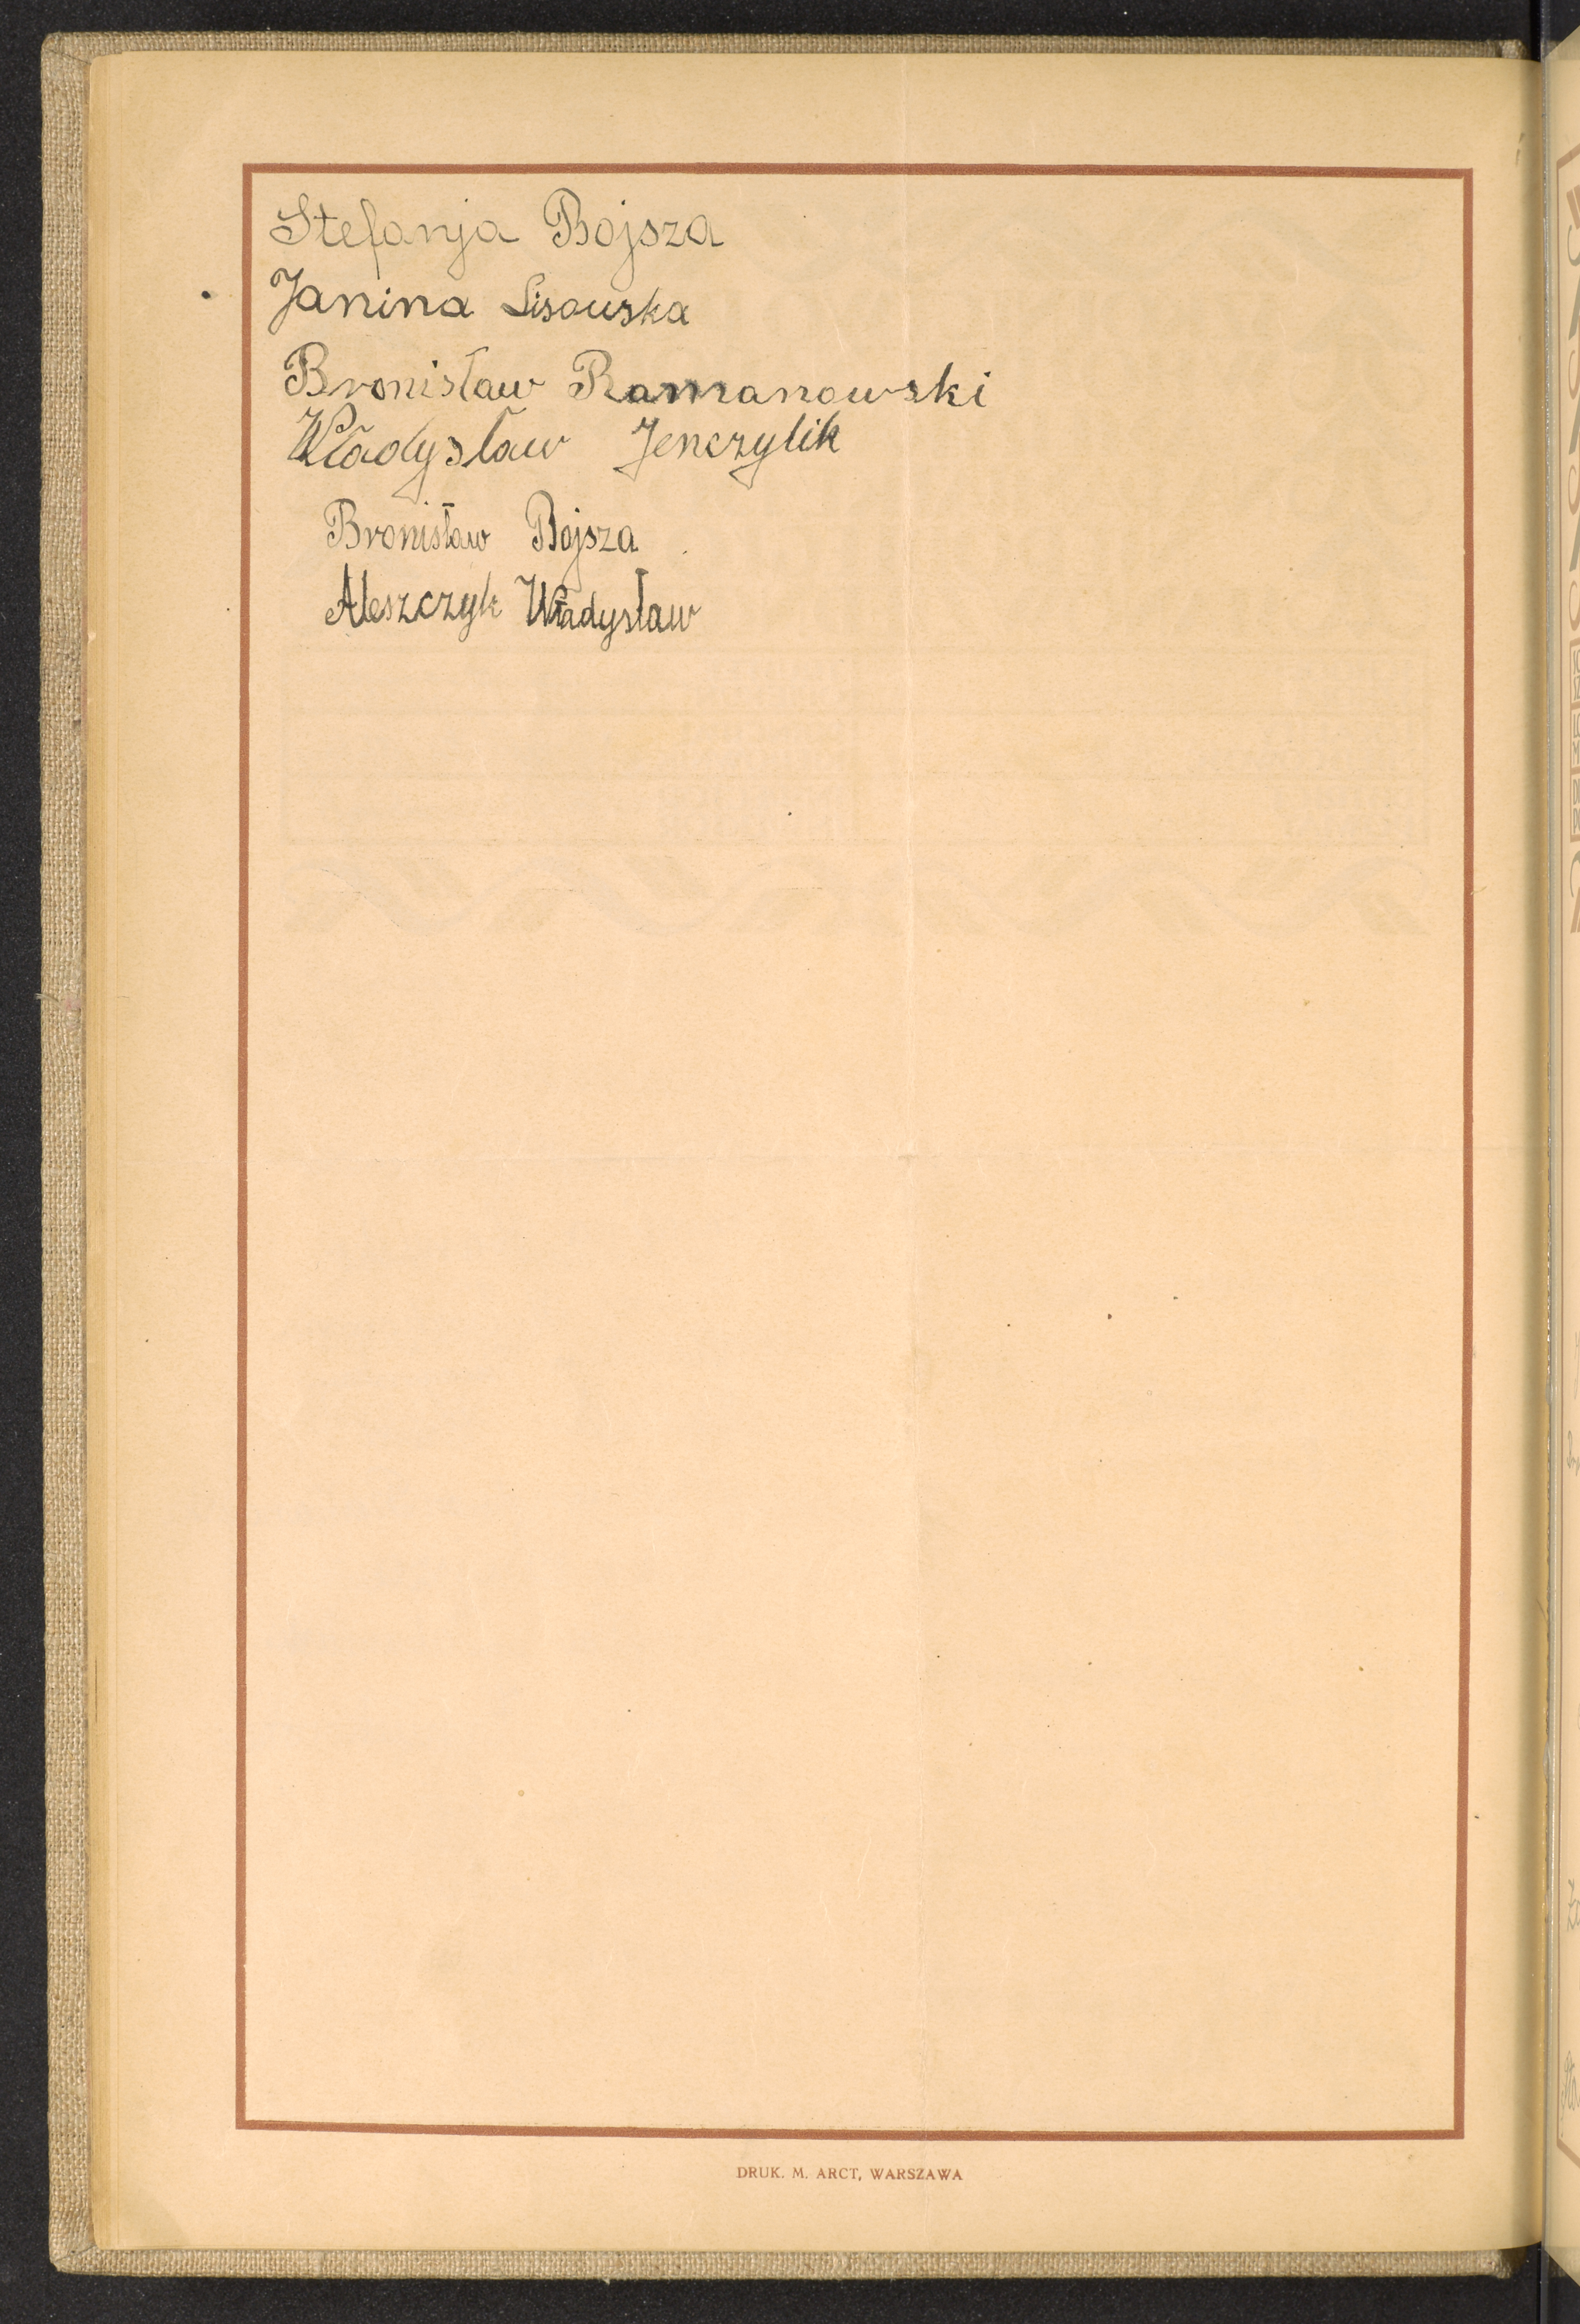 Stefanja Bojsza
Janina Lisowska
Bronisław Ramanowski
Władysław Jenczylik
Bronisław Bojsza
Aleszczyk Władysław
DRUK. M. ARCT, WARSZAWA